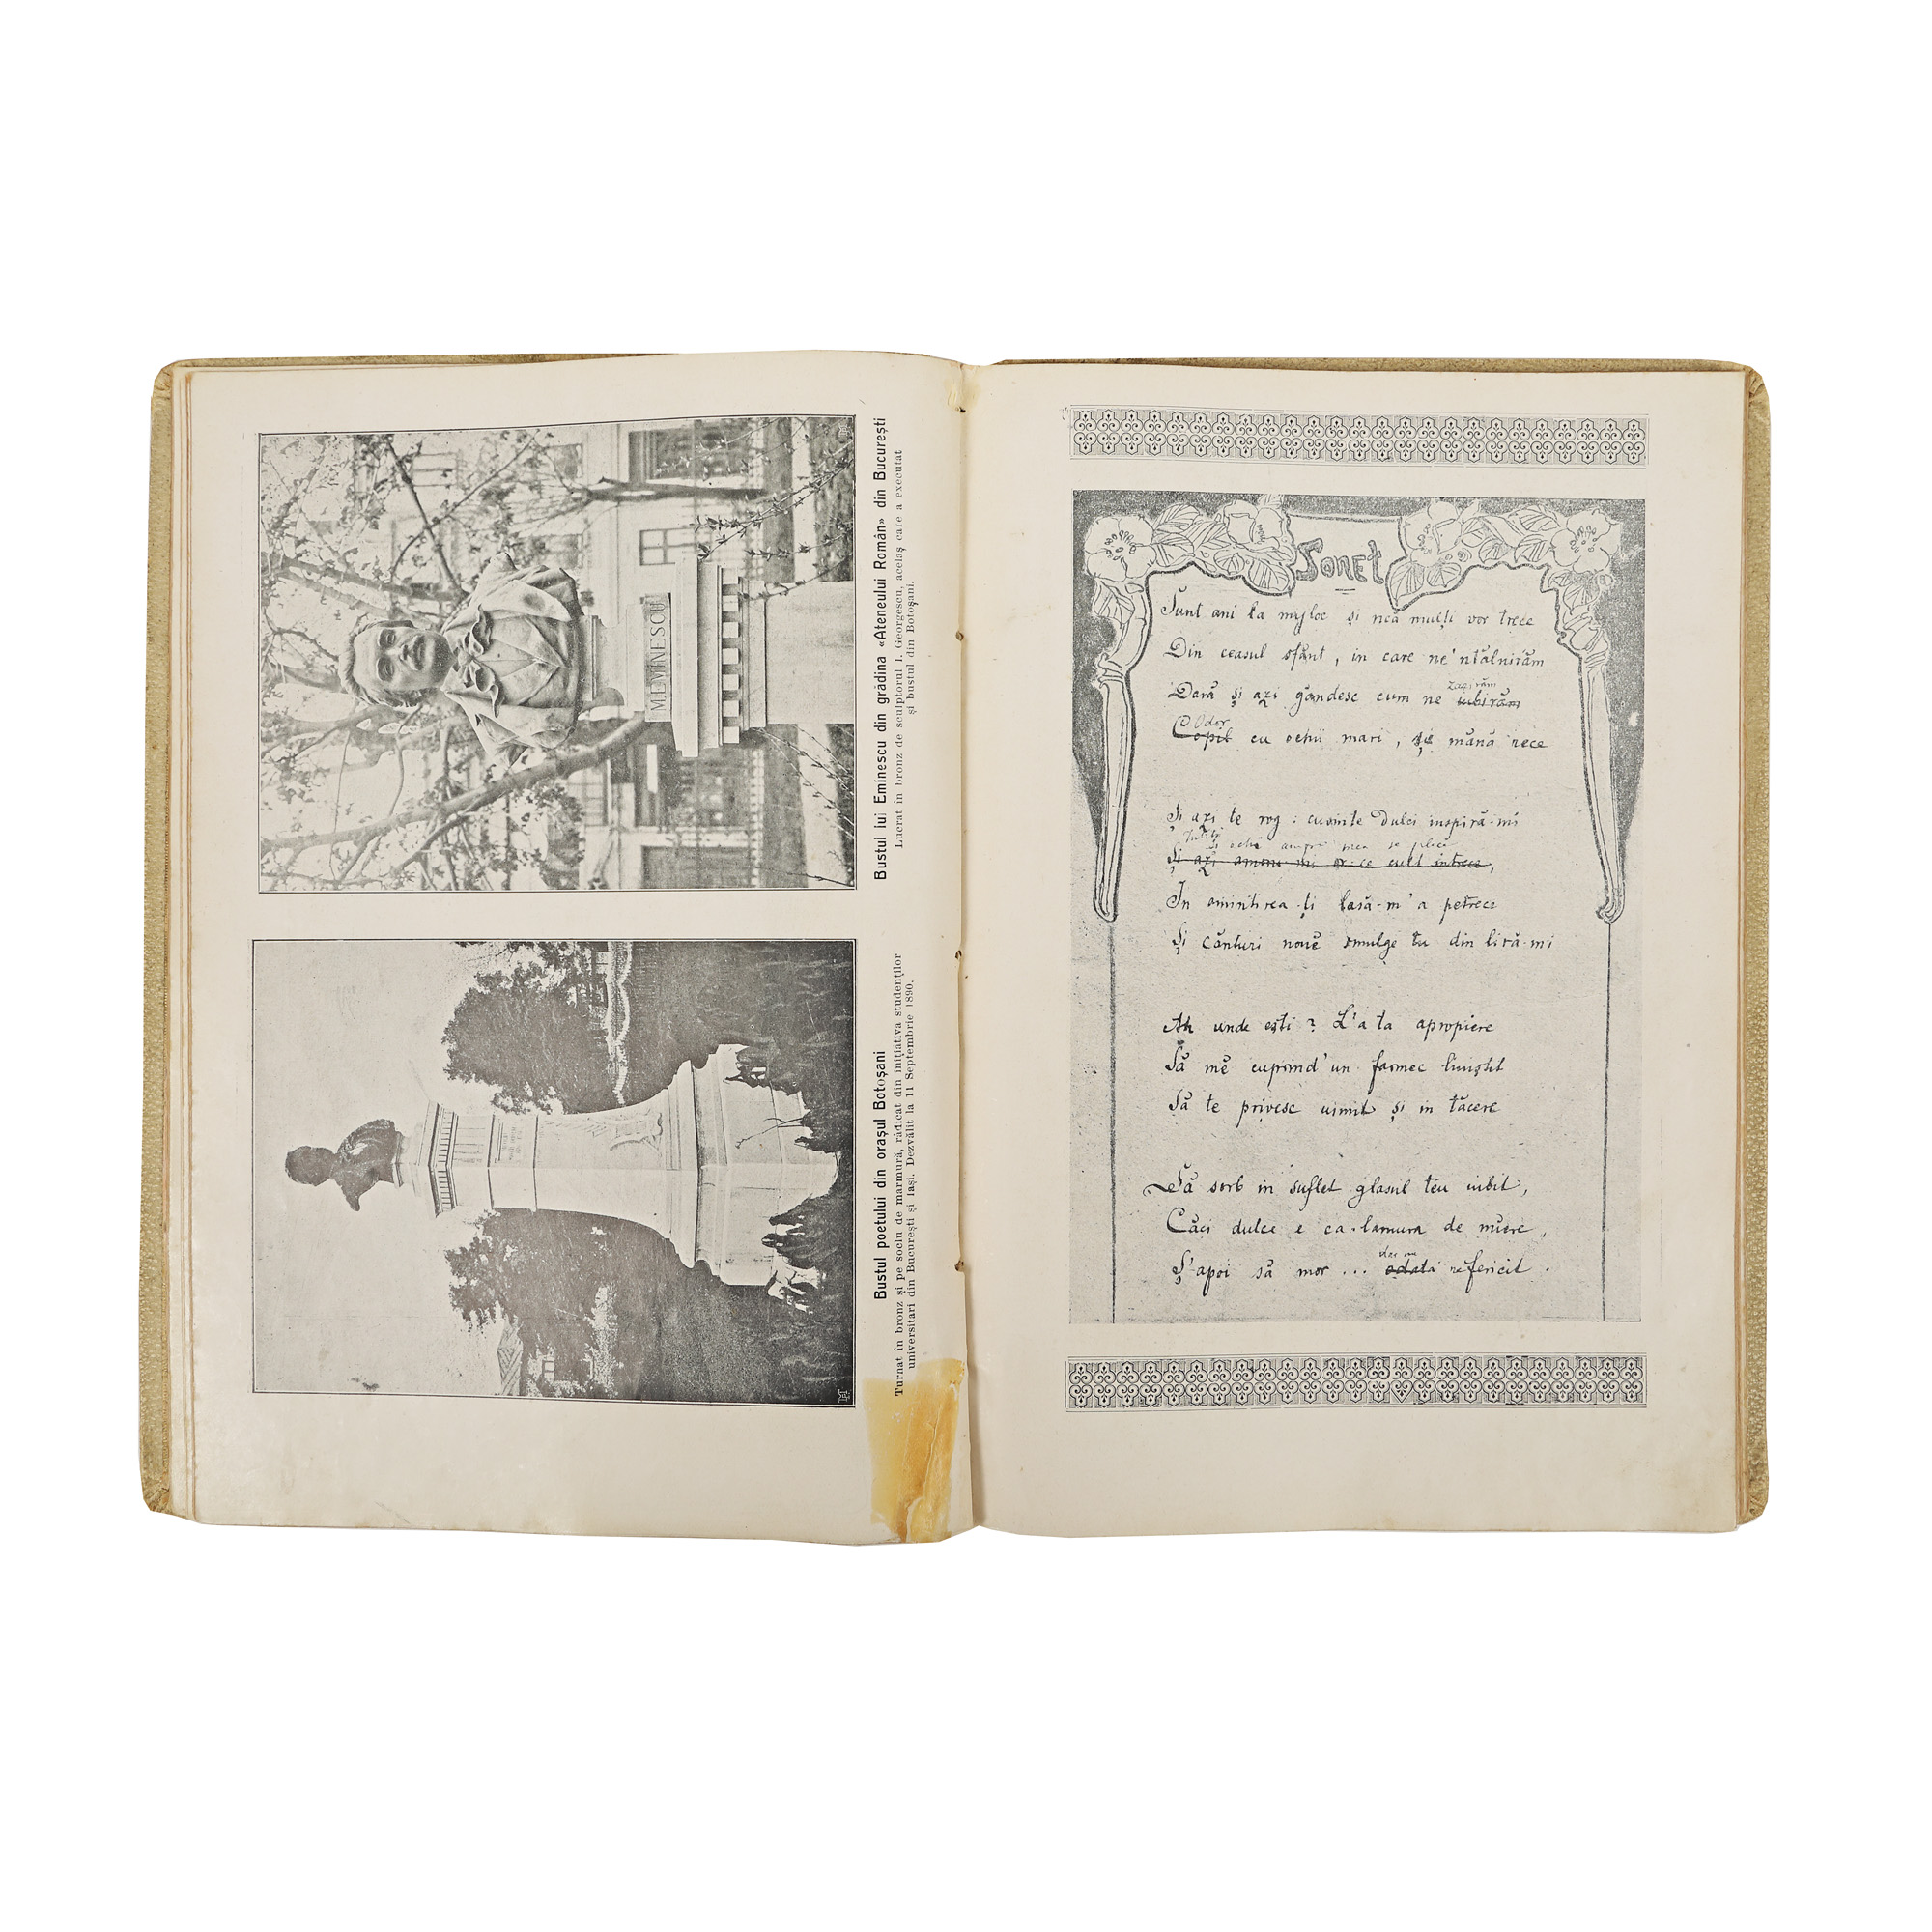 Bustul lui Eminescu din grădina «Ateneului Român» din București
Lucrat în bronz de sculptorul I. Georgescu, acelaș care a executat
și bustul din Botoșani.
M. EMINESCU
Bustul poetului din orașul Botoșani
Turnat în bronz și pe soclu de marmură, rădicat din inițiativa studenților
universitari din București și Iași. Dezvălit la 11 Septembrie 1890.
Sonet
Sunt ani la mijloc și ncă mulți vor trece
Din ceasul sfânt, in care ne'ntâlnirăm
Dară și azi gândesc cum ne iubirăm
Odor
Copil cu ochii mari, și mână rece
Și azi te rog: cuvinte dulci inspiră-mi
Și azi
În amintirea-ți lasă-m'a petrece
Și cânturi nouĕ smulge tu din liră-mi
Ah unde ești? L'a ta apropiere
Să mĕ cuprind'un farmec liniștit
Să te privesc uimit și in tăcere
Să sorb in suflet glasul tĕu iubit,
Căci dulce e ca-lamura de miere,
Ș'apoi să mor... odată nefericit.